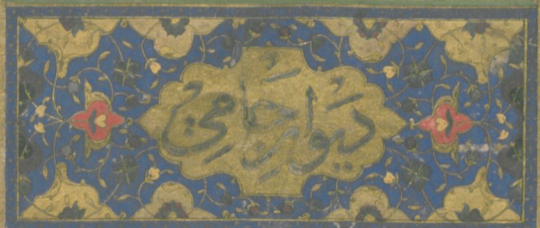 دیوان جامی